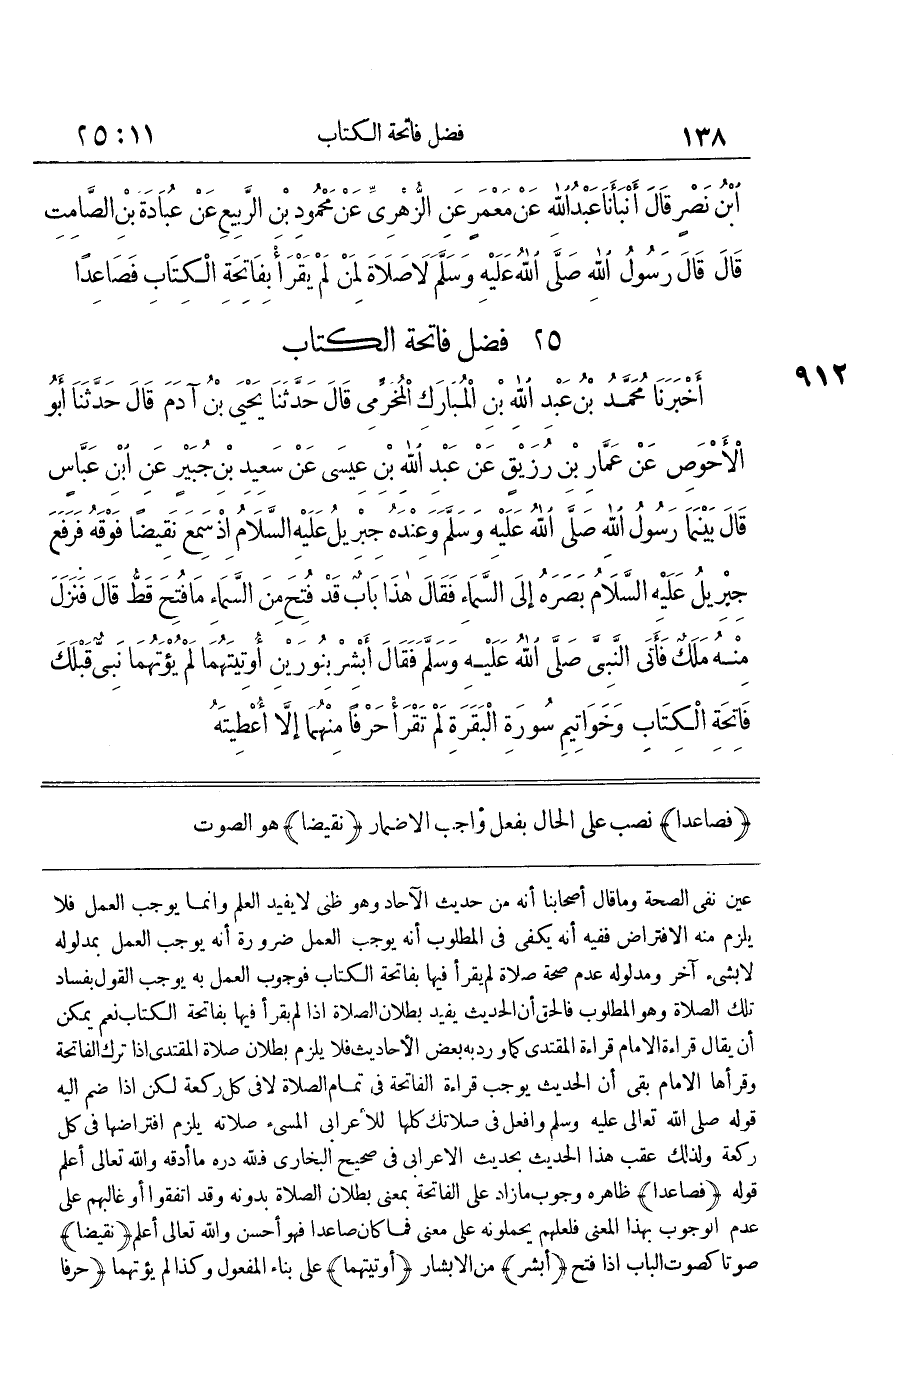 ١٣٨ فضل فاتحة الكتاب ٢٥:١١
ٱبْنُ نَصْرٍ قَالَ أَنْبَأَنَا عَبْدُ ٱللهِ عَنْ مَعْمَرٍ عَنِ الزُّهْرِىِّ عَنْ مَحْمُودِ بْنِ الرَّبِيعِ عَنْ عُبَادَةَ بْنِ الصَّامِتِ
قَالَ قَالَ رَسُولُ ٱللهِ صَلَّى ٱللهُ عَلَيْهِ وَسَلَّمَ لَا صَلَاةَ لِمَنْ لَمْ يَقْرَأْ بِفَاتِحَةِ الْكِتَابِ فَصَاعِدًا
٢٥ فضل فاتحة الكتاب
٩١٢
أَخْبَرَنَا مُحَمَّدُ بْنُ عَبْدِ ٱللهِ بْنِ الْمُبَارَكِ الْمُخَرِّمِى قَالَ حَدَّثَنَا يَحْيَى بْنُ آدَمَ قَالَ حَدَّثَنَا أَبُو
الْأَحْوَصِ عَنْ عَمَّارِ بْنِ رُزَيْقٍ عَنْ عَبْدِ ٱللهِ بْنِ عِيسَى عَنْ سَعِيدِ بْنِ جُبَيْرٍ عَنِ ٱبْنِ عَبَّاسٍ
قَالَ بَيْنَمَا رَسُولُ ٱللهِ صَلَّى ٱللهُ عَلَيْهِ وَسَلَّمَ وَعِنْدَهُ جِبْرِيلُ عَلَيْهِ السَّلَامُ إِذْ سَمِعَ نَقِيضًا فَوْقَهُ فَرَفَعَ
جِبْرِيلُ عَلَيْهِ السَّلَامُ بَصَرَهُ إِلَى السَّمَاءِ فَقَالَ هٰذَا بَابٌ قَدْ فُتِحَ مِنَ السَّمَاءِ مَا فُتِحَ قَطُّ قَالَ فَنَزَلَ
مِنْهُ مَلَكٌ فَأَتَى النَّبِىَّ صَلَّى ٱللهُ عَلَيْهِ وَسَلَّمَ فَقَالَ أَبْشِرْ بِنُورَيْنِ أُوتِيتَهُمَا لَمْ يُؤْتَهُمَا نَبِىٌّ قَبْلَكَ
فَاتِحَةِ الْكِتَابِ وَخَوَاتِيمِ سُورَةِ الْبَقَرَةِ لَمْ تَقْرَأْ حَرْفًا مِنْهُمَا إِلَّا أُعْطِيتَهُ
﴿فصاعدا﴾ نصب على الحال بفعل واجب الاضمار ﴿نقيضا﴾ هو الصوت
عين نفى الصحة وما قال أصحابنا أنه من حديث الآحاد وهو ظنى لا يفيد العلم وانما يوجب العمل فلا
يلزم منه الافتراض ففيه أنه يكفى فى المطلوب أنه يوجب العمل ضرورة أنه يوجب العمل بمدلوله
لا بشىء آخر ومدلوله عدم صحة صلاة لم يقرأ فيها بفاتحة الكتاب فوجوب العمل به يوجب القول بفساد
تلك الصلاة وهو المطلوب فالحق أن الحديث يفيد بطلان الصلاة اذا لم يقرأ فيها بفاتحة الكتاب نعم يمكن
أن يقال قراءة الامام قراءة المقتدى كما ورد به بعض الأحاديث فلا يلزم بطلان صلاة المقتدى اذا ترك الفاتحة
وقرأها الامام بقى أن الحديث يوجب قراءة الفاتحة فى تمام الصلاة لا فى كل ركعة لكن اذا ضم اليه
قوله صلى الله تعالى عليه وسلم وافعل فى صلاتك كلها للأعرابى المسىء صلاته يلزم افتراضها فى كل
ركعة ولذلك عقب هذا الحديث بحديث الاعرابى فى صحيح البخارى فلله دره ما أدقه والله تعالى أعلم
قوله ﴿فصاعدا﴾ ظاهره وجوب مازاد على الفاتحة بمعنى بطلان الصلاة بدونه وقد اتفقوا أو غالبهم على
عدم الوجوب بهذا المعنى فلعلهم يحملونه على معنى فما كان صاعدا فهو أحسن والله تعالى أعلم ﴿نقيضا﴾
صوتا كصوت الباب اذا فتح ﴿أبشر﴾ من الابشار ﴿أوتيتهما﴾ على بناء المفعول وكذا لم يؤتهما ﴿حرفا